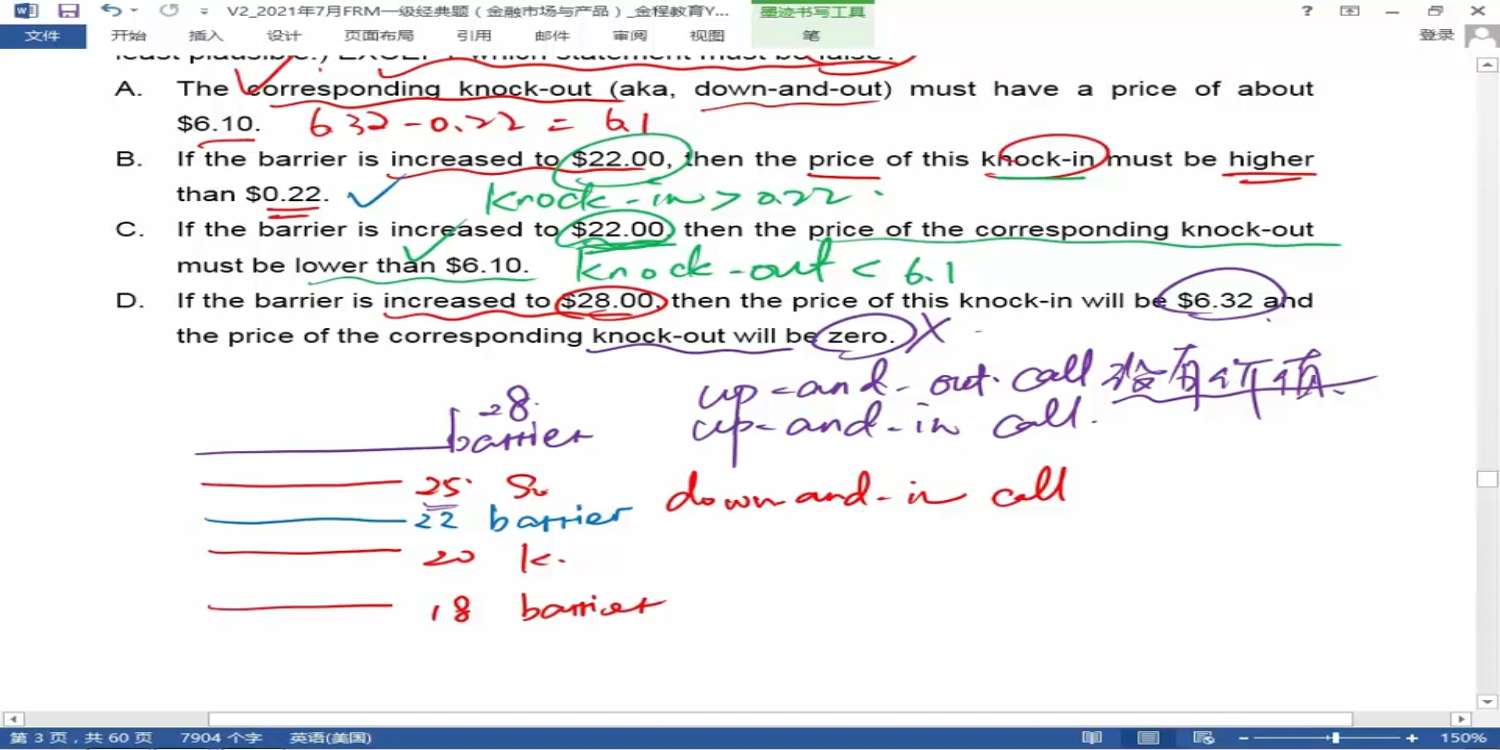 V2_2021年7月FRM一级经典题（金融市场与产品）_金程教育Y... 墨迹书写工具
文件 开始 插入 设计 页面布局 引用 邮件 审阅 视图 笔 登录
least plausible.) EXCEPT which statement must be false?
A. The corresponding knock-out (aka, down-and-out) must have a price of about
$6.10. 6.32 - 0.22 = 6.1
B. If the barrier is increased to $22.00, then the price of this knock-in must be higher
than $0.22. knock-in > 0.22
C. If the barrier is increased to $22.00, then the price of the corresponding knock-out
must be lower than $6.10. knock-out < 6.1
D. If the barrier is increased to $28.00, then the price of this knock-in will be $6.32 and
the price of the corresponding knock-out will be zero. X
28 up-and-out call 没有价值
barrier up-and-in call
25 S₀ down-and-in call
22 barrier
20 K
18 barrier
第 3 页，共 60 页 7904 个字 英语(美国) 150%